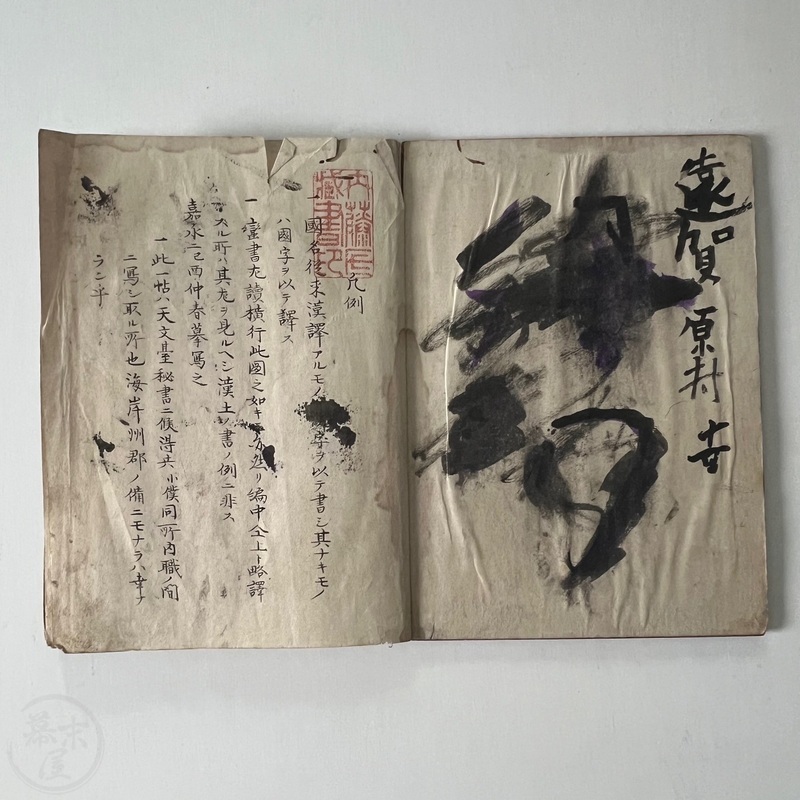 遠賀原村
内藤氏
藏書印
凡例
一國名從来漢譯アルモノ字ヲ以テ書シ其ナキモノ
ハ國字ヲ以テ譯ス
一蠻書左讀横行此圖之如キ亦然リ編中仝上ト略譯
スル所ハ其左ヲ見ルヘシ漢土ノ書ノ例ニ非ス
嘉永二己酉仲春摹寫之
一此一帖ハ天文臺秘書ニ候得共小僕同所内職ノ間
ニ寫シ取ル所也海岸州郡ノ備ニモナラハ幸ナ
ランヤ
幕末屋